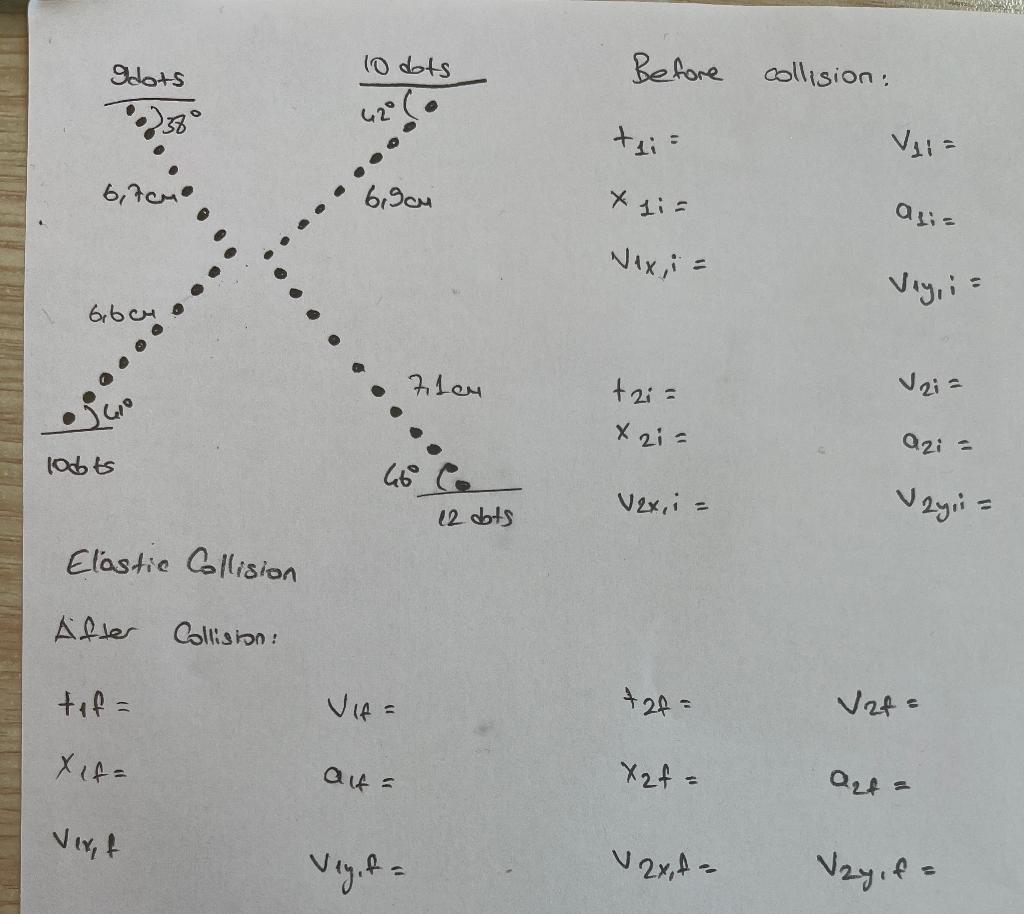 9dots
10 dots
38°
42°
6,7cm
6,9cm
6,6cm
7,1cm
41°
46°
10dots
12 dots
Before collision:
t1i =
V1i =
x1i =
a1i =
V1x,i =
V1y,i =
t2i =
V2i =
x2i =
a2i =
V2x,i =
V2y,i =
Elastic Collision
After Collision:
t1f =
V1f =
t2f =
V2f =
x1f =
a1f =
x2f =
a2f =
V1x,f
V1y,f =
V2x,f =
V2y,f =